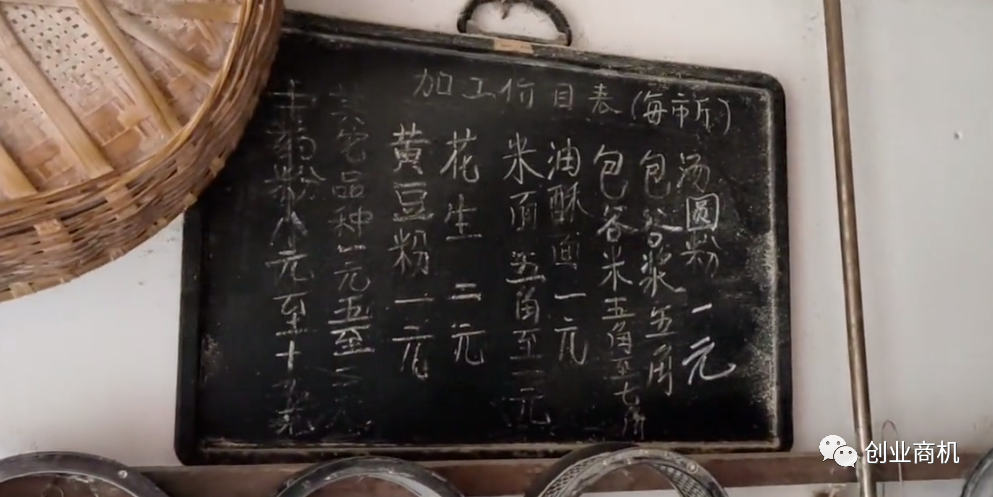 加工价目表(每市斤)
汤圆粉一元
包谷浆五角
包谷米五角至七角
油酥面一元
米面五角至一元
花生二元
黄豆粉一元
其它品种一元五至二元
中药粉八元至十元
创业商机